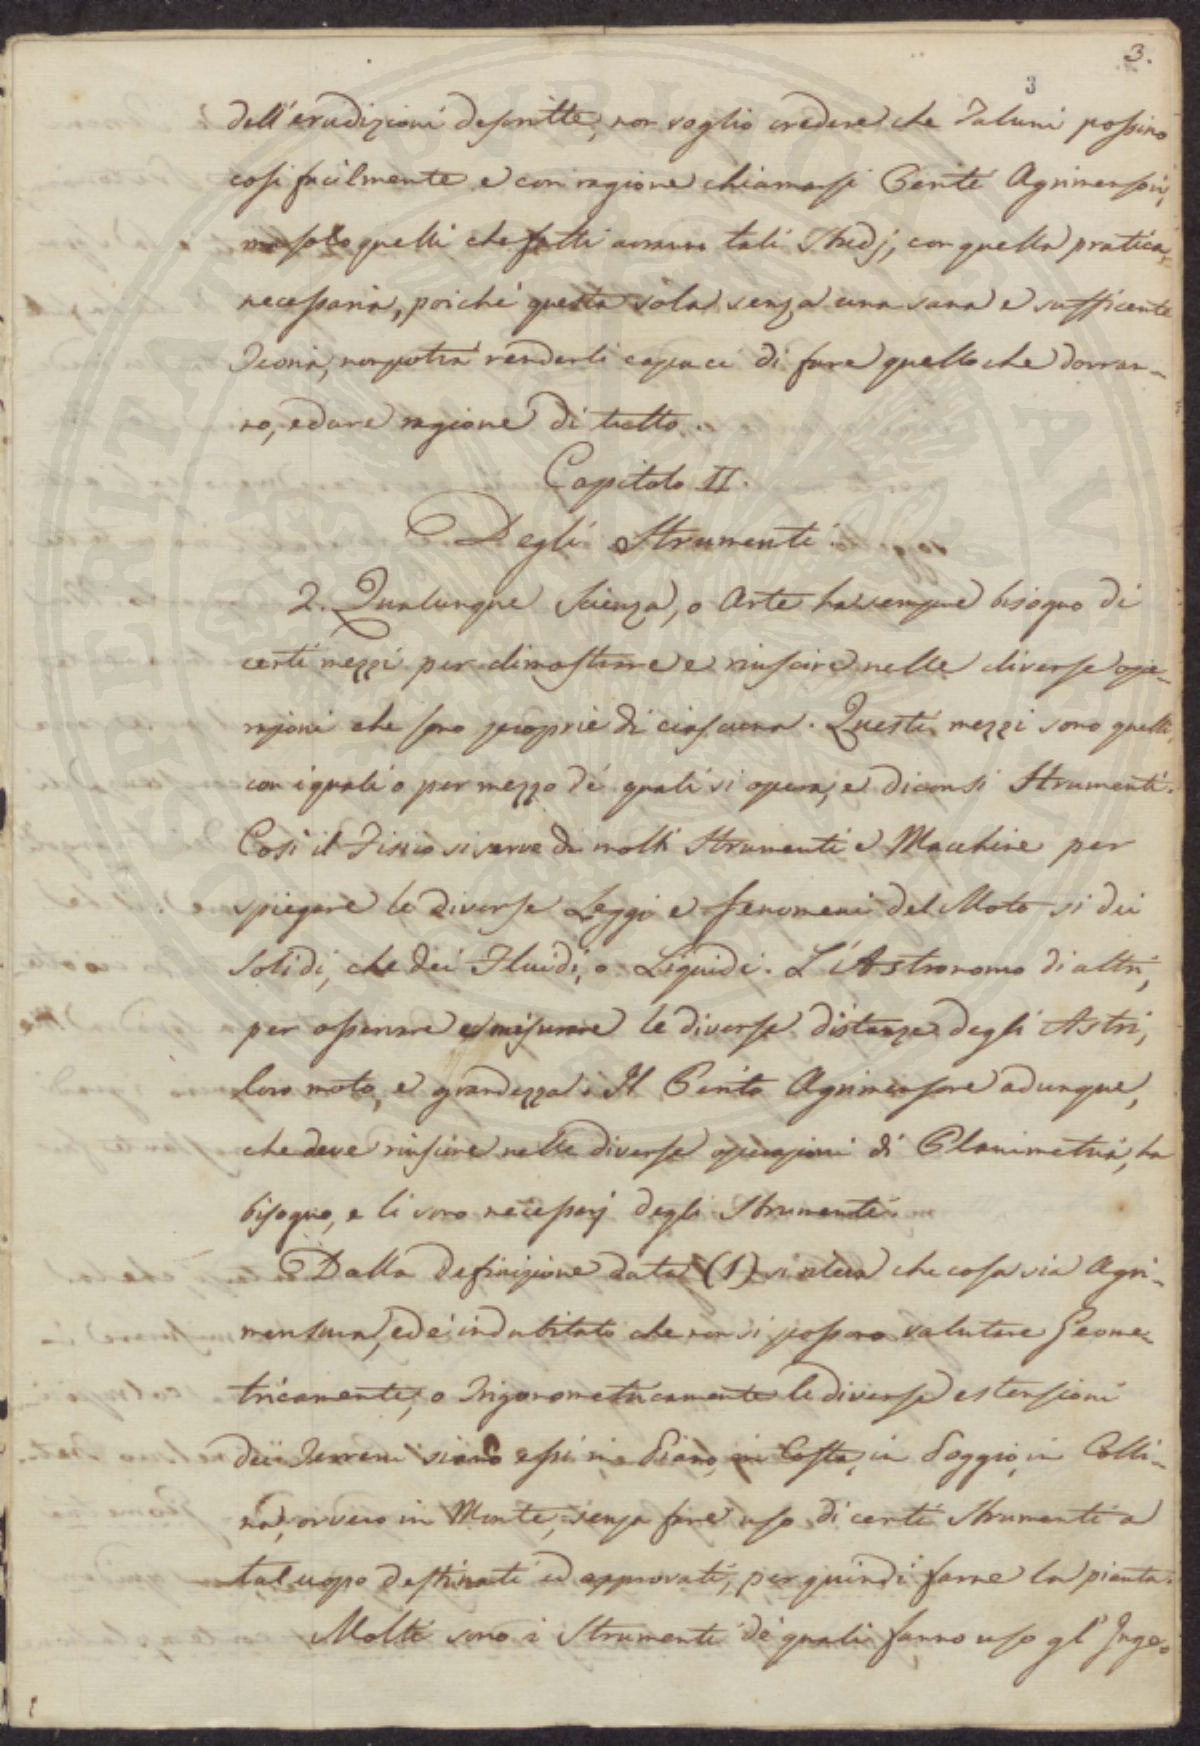 3.
3
dell'erudizioni descritte, non voglio credere che Taluni possino
così facilmente e con ragione chiamarsi Periti Agrimensori,
ma solo quelli che fatti avranno tali Studj, con quella pratica
necessaria, poichè questa sola senza una sana e sufficente
Teoria, non potrà renderli capaci di fare quello che dovran-
no, e dare ragione di tutto.
Capitolo II.
Degli Strumenti.
2. Qualunque Scienza, o Arte ha sempre bisogno di
certi mezzi per dimostrare e riuscire nelle diverse ope-
razioni che sono proprie di ciascuna. Questi mezzi sono quelli,
con i quali o per mezzo dè quali si opera, e diconsi Strumenti.
Così il Fisico si serve di molti Strumenti e Macchine per
spiegare le diverse Leggi e fenomeni del Moto sì dei
Solidi, che dei Fluidi, o Liquidi. L'Astronomo di altri,
per osservare e misurare le diverse distanze degli Astri,
loro moto, e grandezza. Il Perito Agrimensore adunque,
che deve riuscire nelle diverse operazioni di Planimetria, ha
bisogno, e li sono necessarj degli Strumenti.
Dalla definizione data (1) si rileva che cosa sia Agri-
mensura, ed è indubitato che non si possono valutare Geome-
tricamente, o Trigonometricamente le diverse estensioni
dei Terreni siano essi in Piano, in Costa, in Poggio, in Colli-
na, ovvero in Monte, senza fare uso di certi Strumenti a
tal uopo destinati ed approvati, per quindi farne la pianta.
Molti sono i Strumenti dè quali fanno uso gl'Inge-